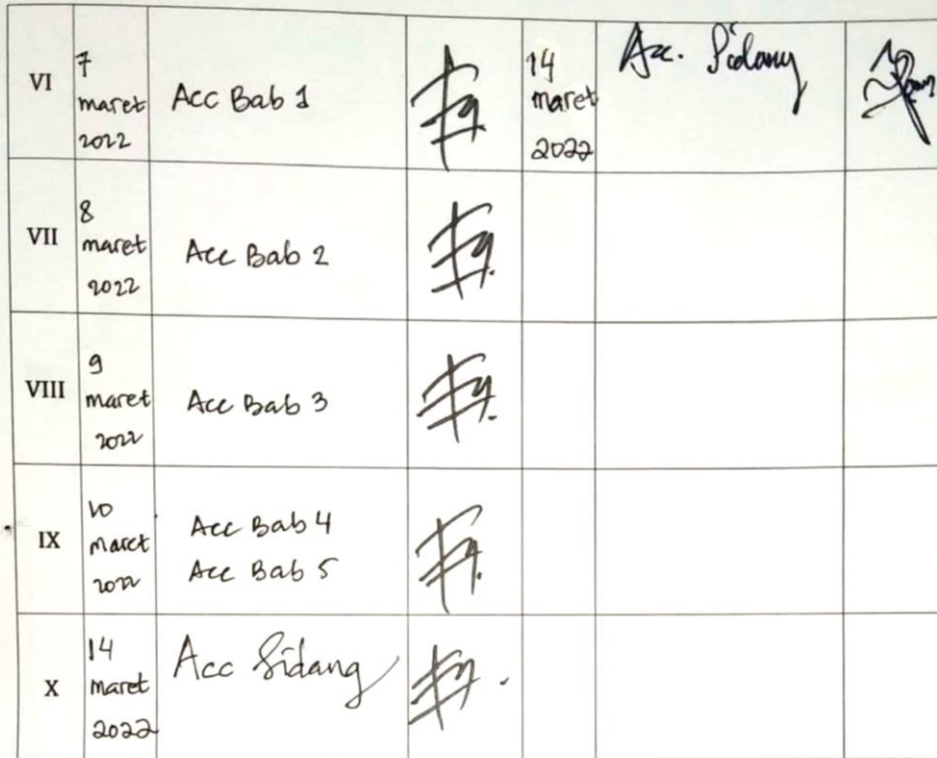 VI
7
maret
2022
Acc Bab 1
14
maret
2022
Acc. Sidang
VII
8
maret
2022
Acc Bab 2
VIII
9
maret
2022
Acc Bab 3
IX
10
maret
2022
Acc Bab 4
Acc Bab 5
X
14
maret
2022
Acc Sidang